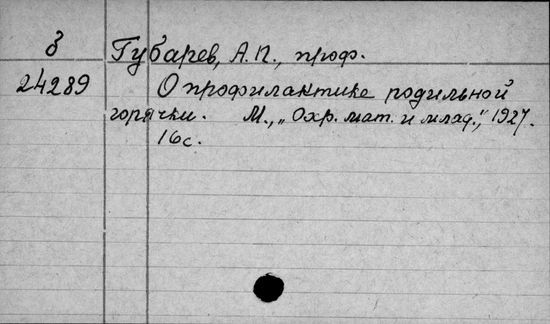 З Губарев, А.П., проф.
24289 О профилактике родильной
горячки. М., „Охр. мат. и млад.", 1927.
16с.